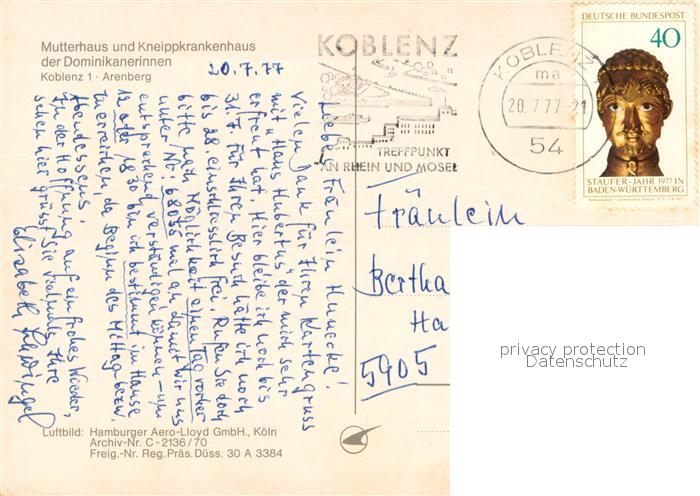 Mutterhaus und Kneippkrankenhaus
der Dominikanerinnen
Koblenz 1 · Arenberg
20.7.77
Liebes Fräulein
Vielen Dank für Ihren Kartengruss
mit „Haus Hubertus" der mich sehr
erfreut hat. Hier bleibe ich noch bis
31.7. Für Ihren Besuch hätte ich noch
bis 28. einschliesslich frei. Rufen Sie doch
bitte nach Möglichkeit einen Tag vorher
unter Nr: 68075 mal an damit wir uns
entsprechend verständigen können – um
12 oder 18.30 bin ich bestimmt im Hause
zu erreichen, da Beginn des Mittag- bezw.
Abendessens.
In der Hoffnung auf ein frohes Wieder,
sehen hier grüsst Sie vielmals Ihre
Elisabeth
KOBLENZ
TREFFPUNKT
AN RHEIN UND MOSEL
KOBLENZ
ma
20.7.77-21
54
DEUTSCHE BUNDESPOST
40
STAUFER-JAHR 1977 IN
BADEN-WÜRTTEMBERG
Fräulein
Bertha
Ha
5905
privacy protection
Datenschutz
Luftbild: Hamburger Aero-Lloyd GmbH., Köln
Archiv-Nr. C - 2136 / 70
Freig.-Nr. Reg. Präs. Düss. 30 A 3384